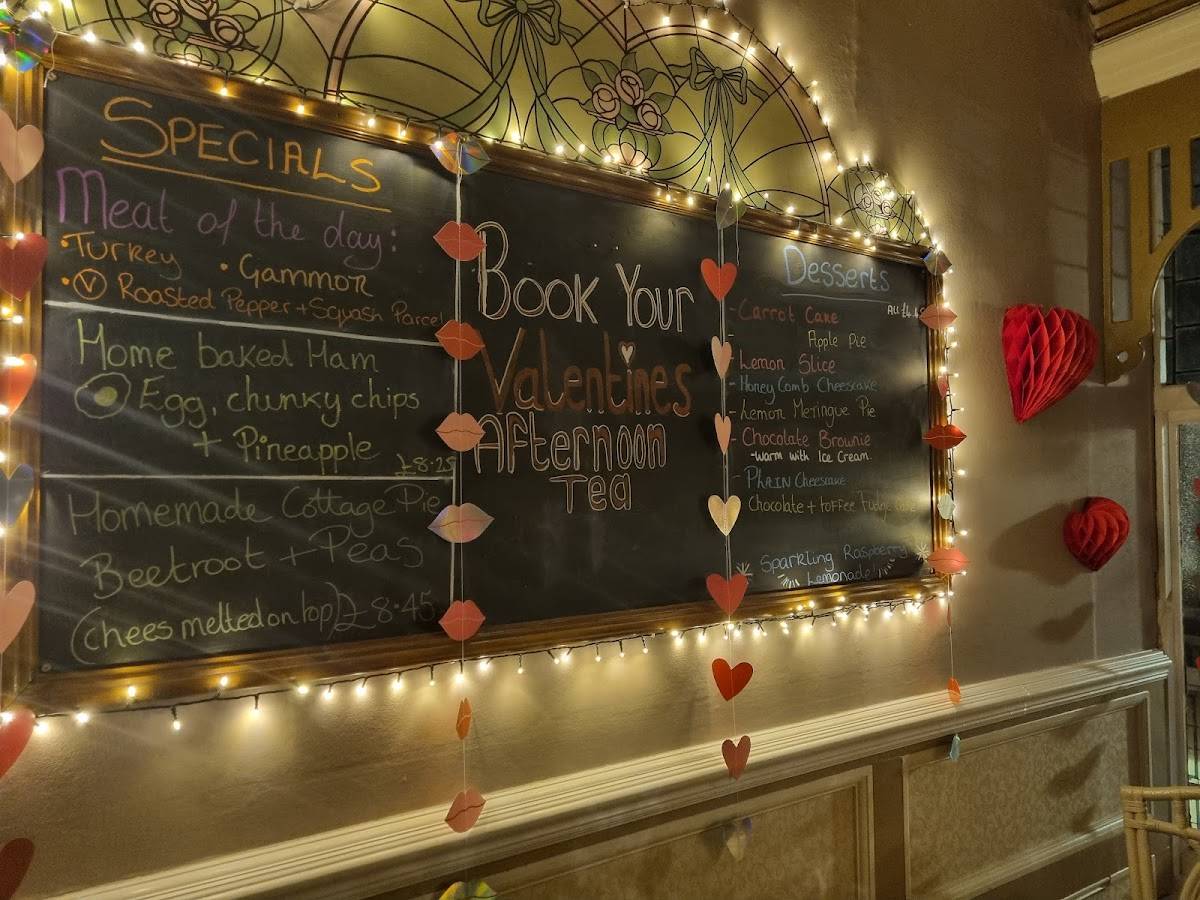 SPECIALS
Meat of the day:
• Turkey • Gammon
• V Roasted Pepper + Squash Parcel
Home baked Ham
Egg, chunky chips
+ Pineapple
£8.25
Homemade Cottage Pie
Beetroot + Peas
(chees melted on top) £8.45
Book Your
Valentines
Afternoon
Tea
Desserts
- Carrot Cake
All
Apple Pie
- Lemon Slice
- Honey Comb Cheesecake
- Lemon Meringue Pie
- Chocolate Brownie
- warm with Ice Cream.
- Plain Cheesecake
Chocolate + toffee Fudge
Sparkling Raspberry
Lemonade!